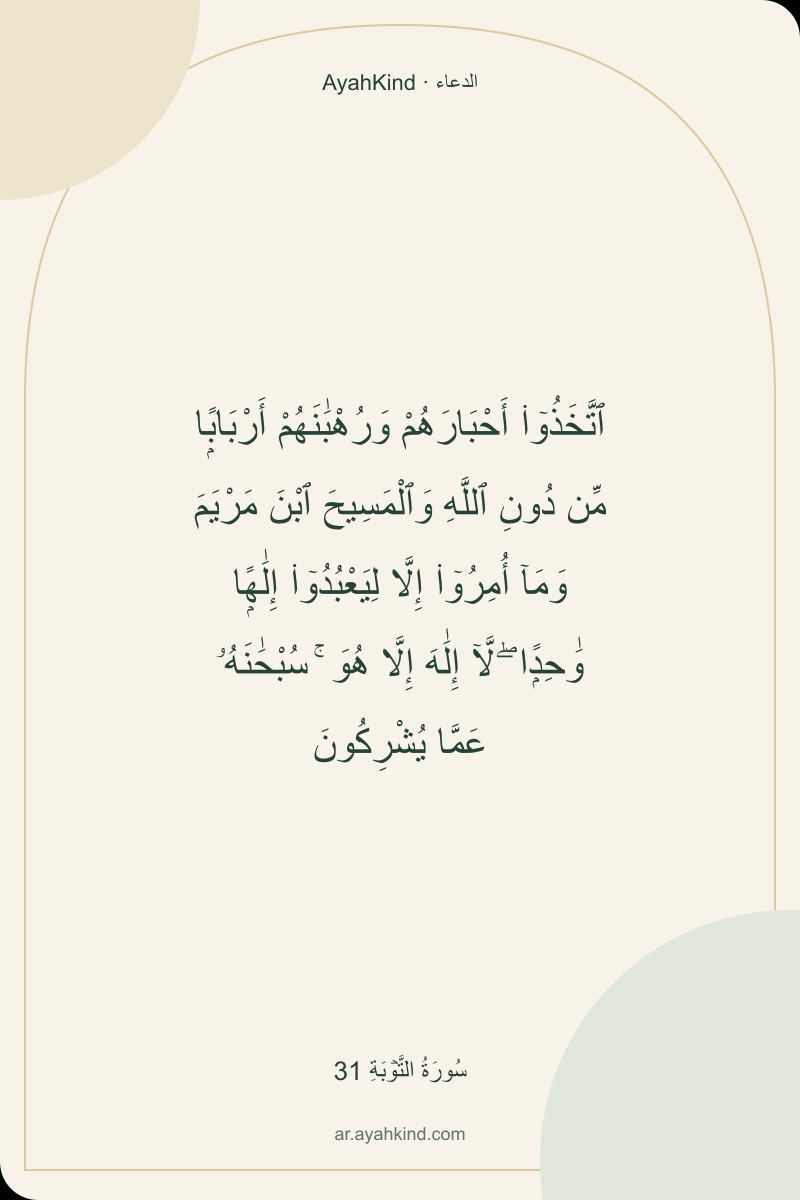 AyahKind · الدعاء
ٱتَّخَذُوٓا۟ أَحْبَارَهُمْ وَرُهْبَـٰنَهُمْ أَرْبَابًۭا
مِّن دُونِ ٱللَّهِ وَٱلْمَسِيحَ ٱبْنَ مَرْيَمَ
وَمَآ أُمِرُوٓا۟ إِلَّا لِيَعْبُدُوٓا۟ إِلَـٰهًۭا
وَٰحِدًۭا ۖ لَّآ إِلَـٰهَ إِلَّا هُوَ ۚ سُبْحَـٰنَهُۥ
عَمَّا يُشْرِكُونَ
سُورَةُ التَّوۡبَةِ 31
ar.ayahkind.com